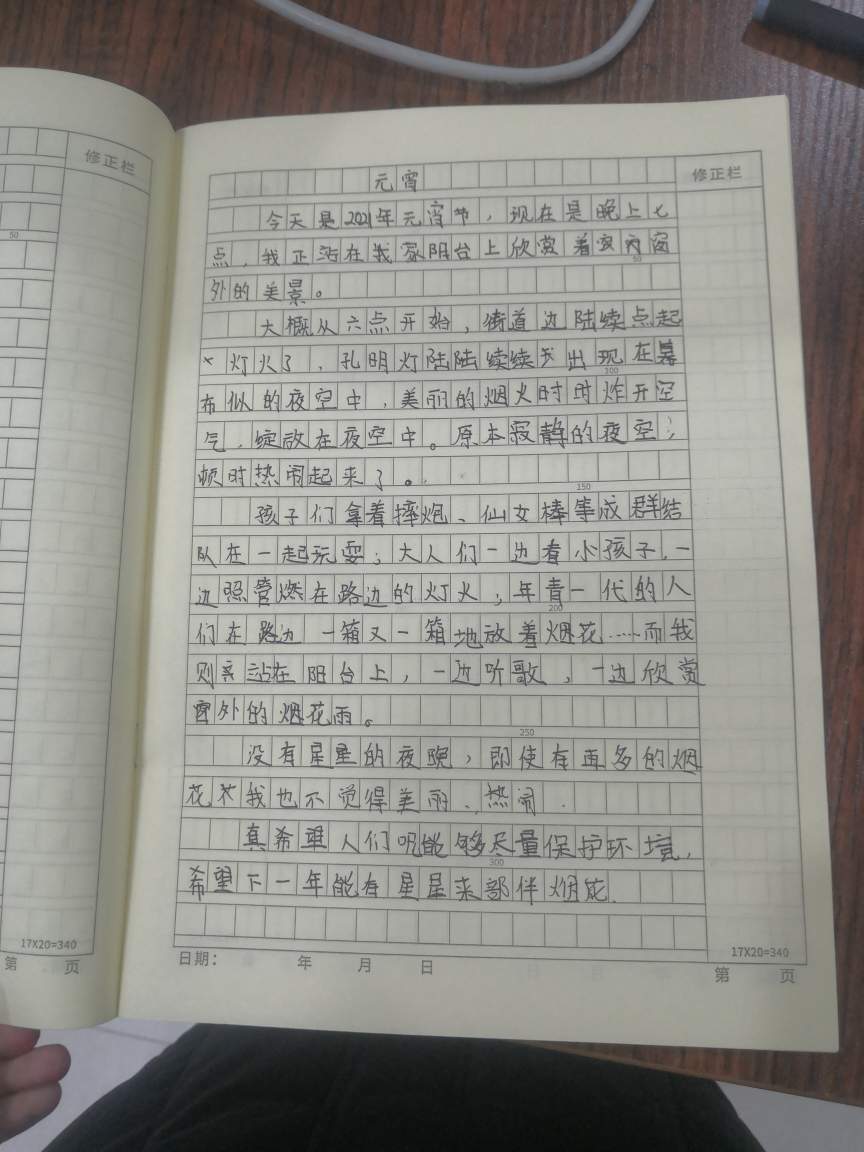 修正栏
修正栏
50
元宵
今天是2021年元宵节，现在是晚上七
点，我正站在我家阳台上欣赏着窗
50
外的美景。
大概从六点开始，街道边陆续点起
灯火了，孔明灯陆陆续续出现在幕
100
布似的夜空中，美丽的烟火时时炸开空
气，绽放在夜空中。原本寂静的夜空，
顿时热闹起来了。
150
孩子们拿着摔炮、仙女棒等成群结
队在一起玩耍；大人们一边看小孩子，一
边照管燃在路边的灯火；年青一代的人
200
们在路边一箱又一箱地放着烟花……而我
则站在阳台上，一边听歌，一边欣赏
窗外的烟花雨。
250
没有星星的夜晚，即使有再多的烟
花我也不觉得美丽、热闹.
真希望人们能够尽量保护环境，
300
希望下一年能有星星来部伴烟花.
17X20=340
17X20=340
日期： 年 月 日
第 页
第 页